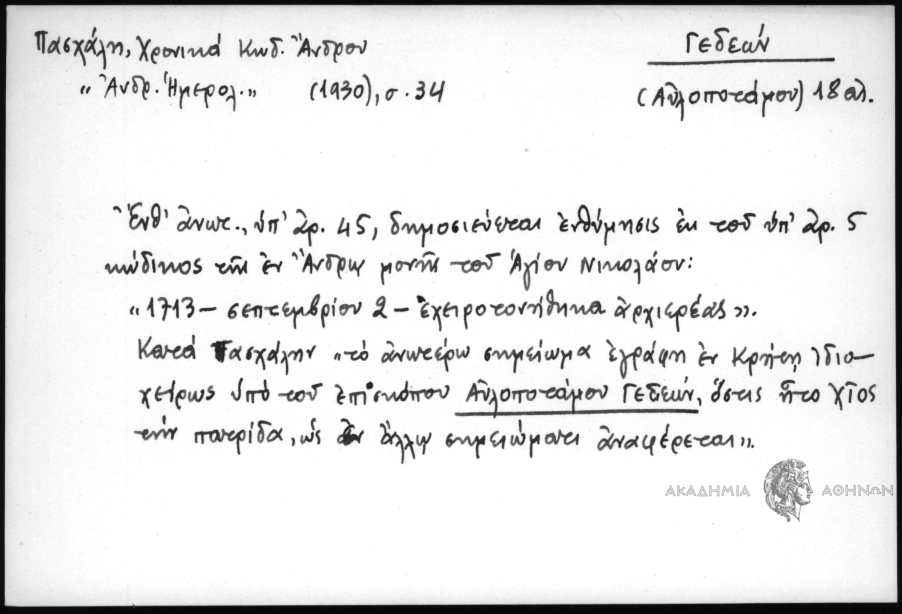 Πασχάλη, Χρονικά Κωδ. Ἄνδρου
"Ἀνδρ. Ἡμερολ." (1930), σ. 34
Γεδεών
(Αὐλοποτάμου) 18 αἰ.
Ἔνθ' ἀνωτ., ὑπ' ἀρ. 45, δημοσιεύεται ἐνθύμησις ἐκ τοῦ ὑπ' ἀρ. 5
κώδικος τῆς ἐν Ἄνδρῳ μονῆς τοῦ Ἁγίου Νικολάου:
"1713 – σεπτεμβρίου 2 – ἐχειροτονήθηκα ἀρχιερέας".
Κατά Πασχάλην "τὸ ἀνωτέρω σημείωμα ἐγράφη ἐν Κρήτῃ ἰδιο-
χείρως ὑπὸ τοῦ ἐπισκόπου Αὐλοποτάμου Γεδεών, ὅστις ἦτο Χῖος
τὴν πατρίδα, ὡς ἐν ἄλλῳ σημειώματι ἀναφέρεται".
ΑΚΑΔΗΜΙΑ ΑΘΗΝΩΝ